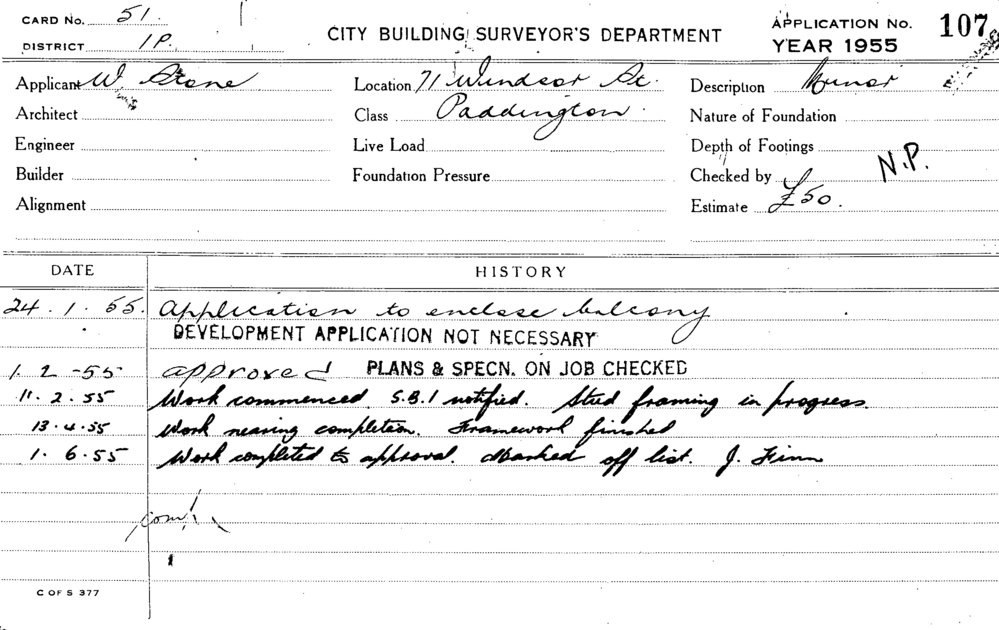 CARD No. 51.
DISTRICT 1P.
CITY BUILDING SURVEYOR'S DEPARTMENT
APPLICATION No. 107
YEAR 1955
Applicant W. Stone
Location 71 Windsor St.
Description Minor
Architect
Class Paddington
Nature of Foundation
Engineer
Live Load
Depth of Footings
N.P.
Builder
Foundation Pressure
Checked by
Alignment
Estimate £50.
DATE HISTORY
24.1.55. Application to enclose balcony
DEVELOPMENT APPLICATION NOT NECESSARY
1.2-55 approved PLANS & SPECN. ON JOB CHECKED
11.2.55 Work commenced S.B.I notified. Stud framing in progress.
13.4.55 Work nearing completion. Framework finished
1.6.55 Work completed to approval. Marked off list. J. Finn
C OF S 377